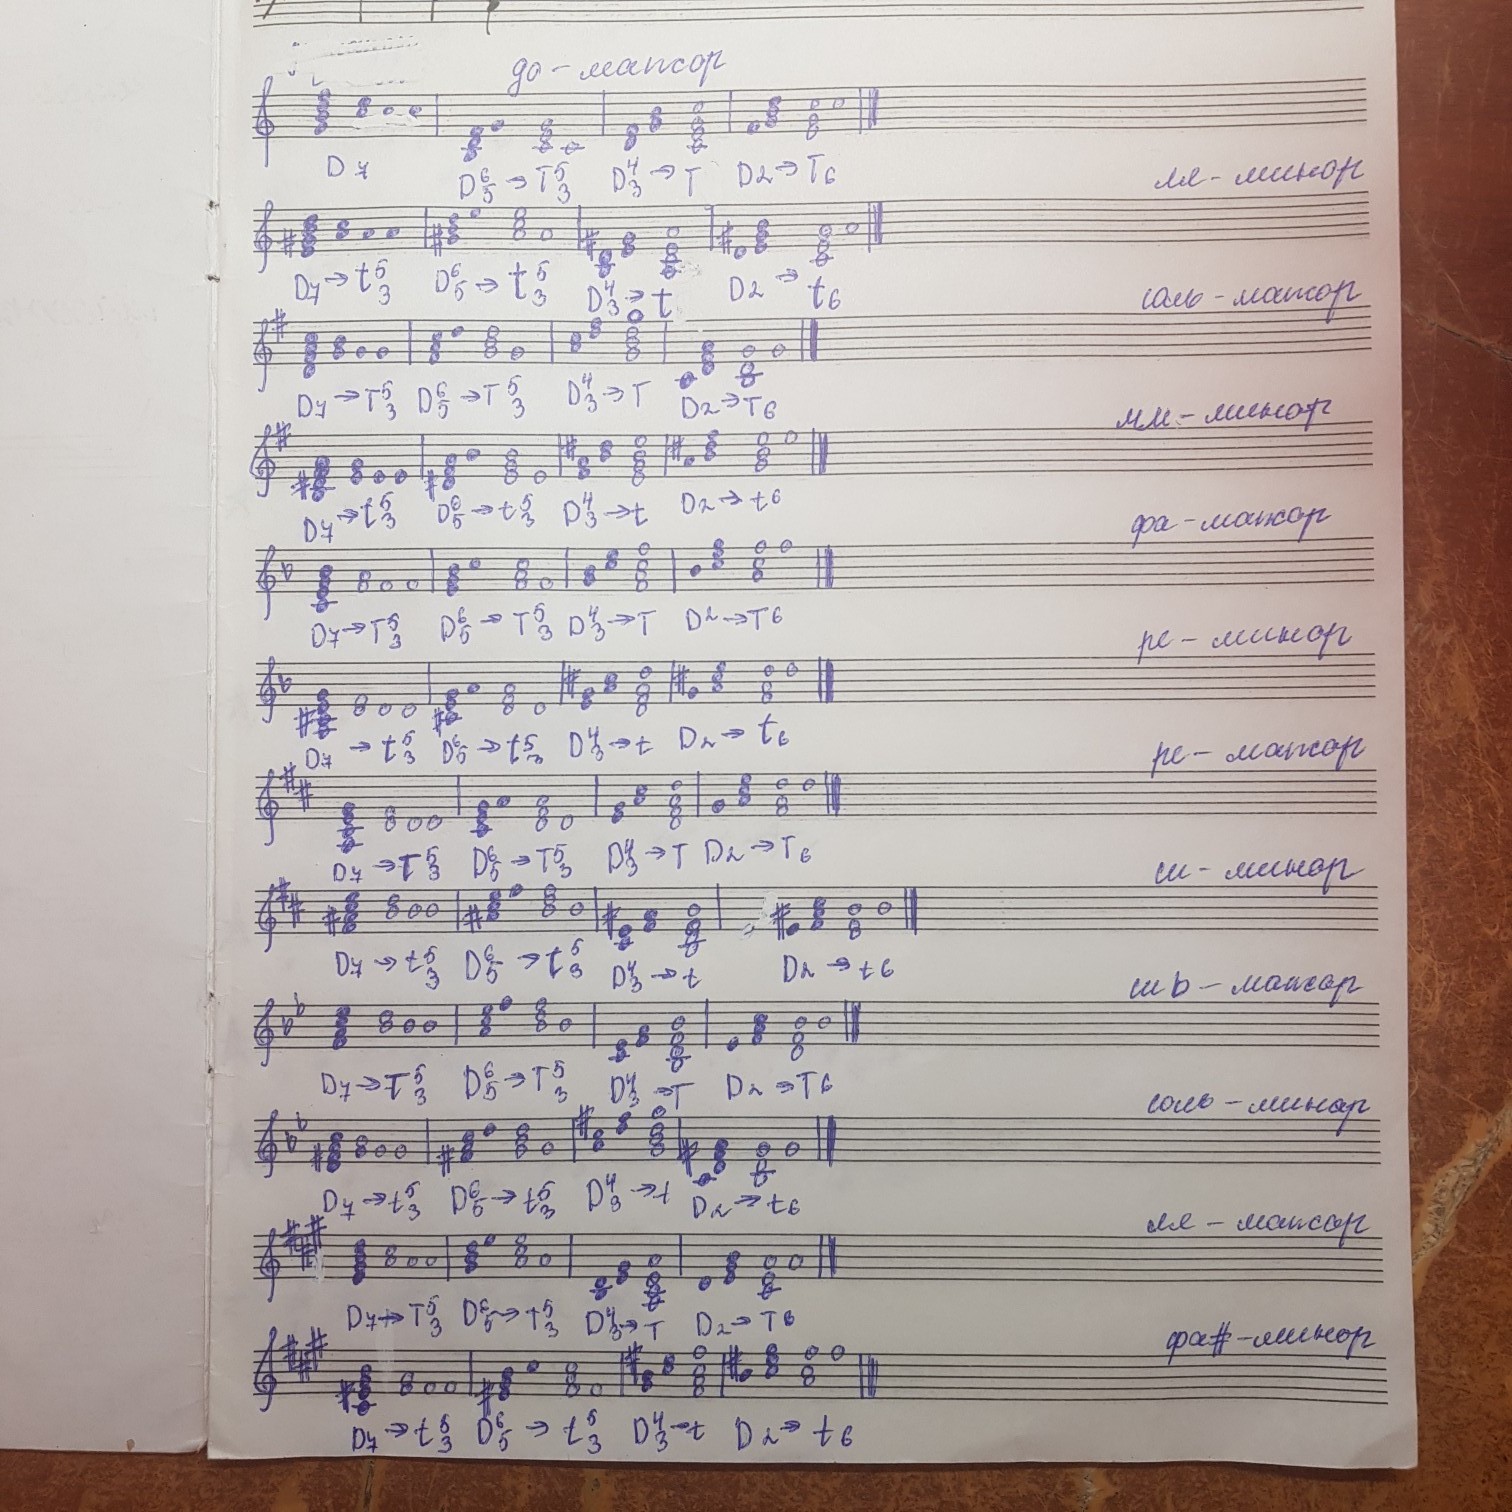 до - мажор
D7 D6/5 → T5/3 D4/3 → T D2 → T6
ля - минор
D7 → t5/3 D6/5 → t5/3 D4/3 → t D2 → t6
соль - мажор
D7 → T5/3 D6/5 → T5/3 D4/3 → T D2 → T6
ми - минор
D7 → t5/3 D6/5 → t5/3 D4/3 → t D2 → t6
фа - мажор
D7 → T5/3 D6/5 → T5/3 D4/3 → T D2 → T6
ре - минор
D7 → t5/3 D6/5 → t5/3 D4/3 → t D2 → t6
ре - мажор
D7 → T5/3 D6/5 → T5/3 D4/3 → T D2 → T6
си - минор
D7 → t5/3 D6/5 → t5/3 D4/3 → t D2 → t6
сиb - мажор
D7 → T5/3 D6/5 → T5/3 D4/3 → T D2 → T6
соль - минор
D7 → t5/3 D6/5 → t5/3 D4/3 → t D2 → t6
ля - мажор
D7 → T5/3 D6/5 → T5/3 D4/3 → T D2 → T6
фа# - минор
D7 → t5/3 D6/5 → t5/3 D4/3 → t D2 → t6